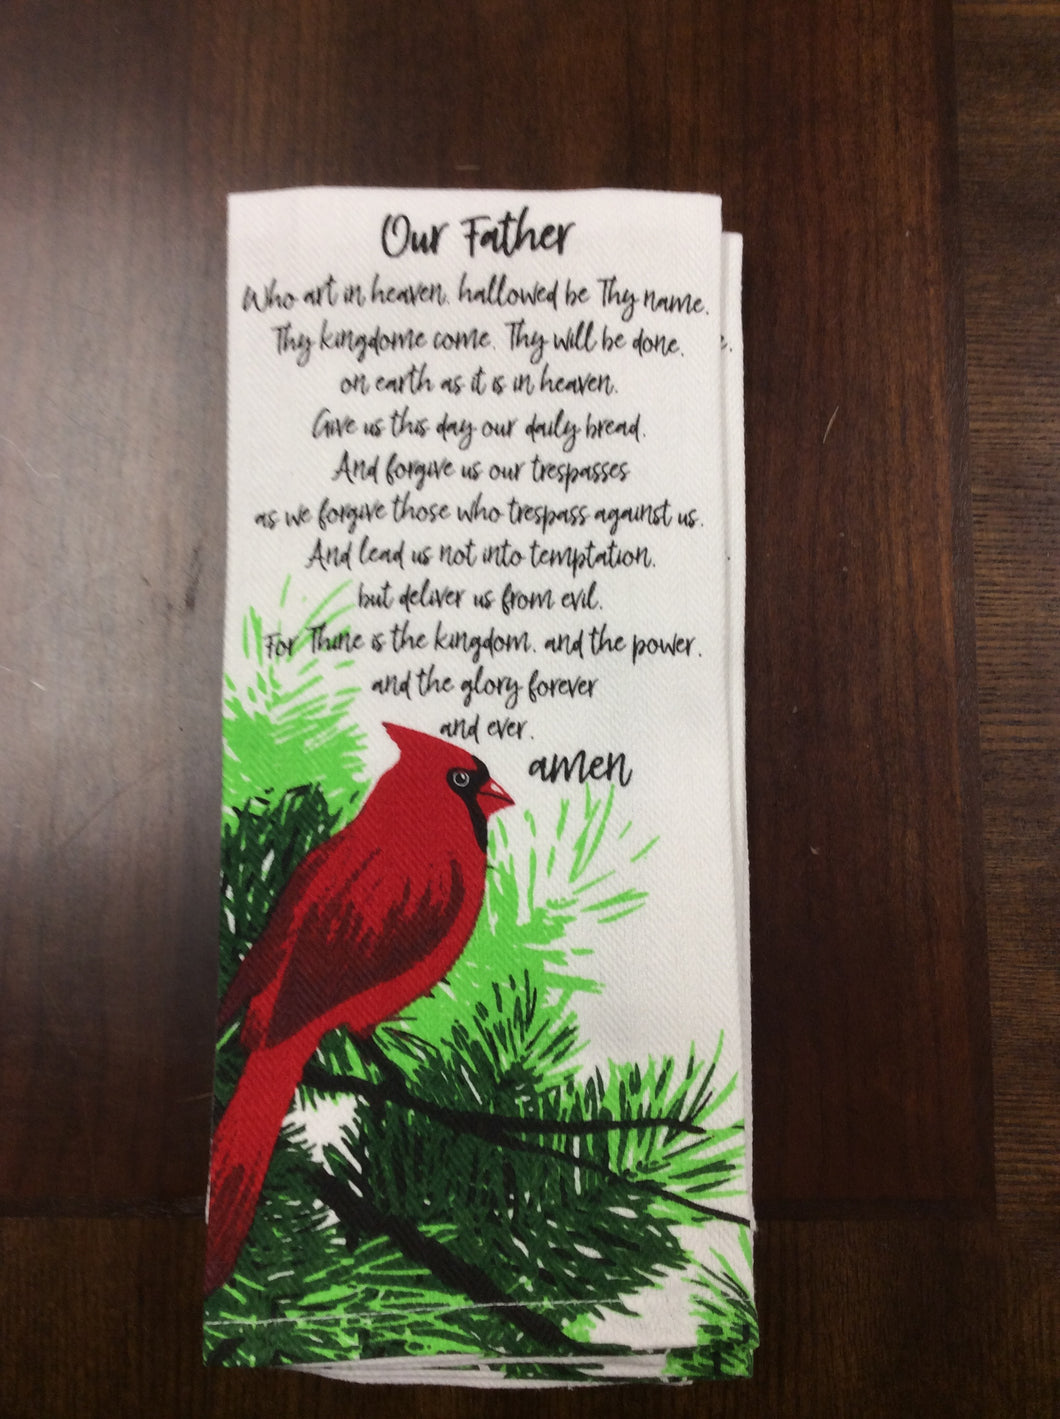 Our Father
Who art in heaven, hallowed be Thy name.
Thy kingdome come. Thy will be done,
on earth as it is in heaven.
Give us this day our daily bread.
And forgive us our trespasses
as we forgive those who trespass against us.
And lead us not into temptation,
but deliver us from evil.
For Thine is the kingdom, and the power,
and the glory forever
and ever.
amen